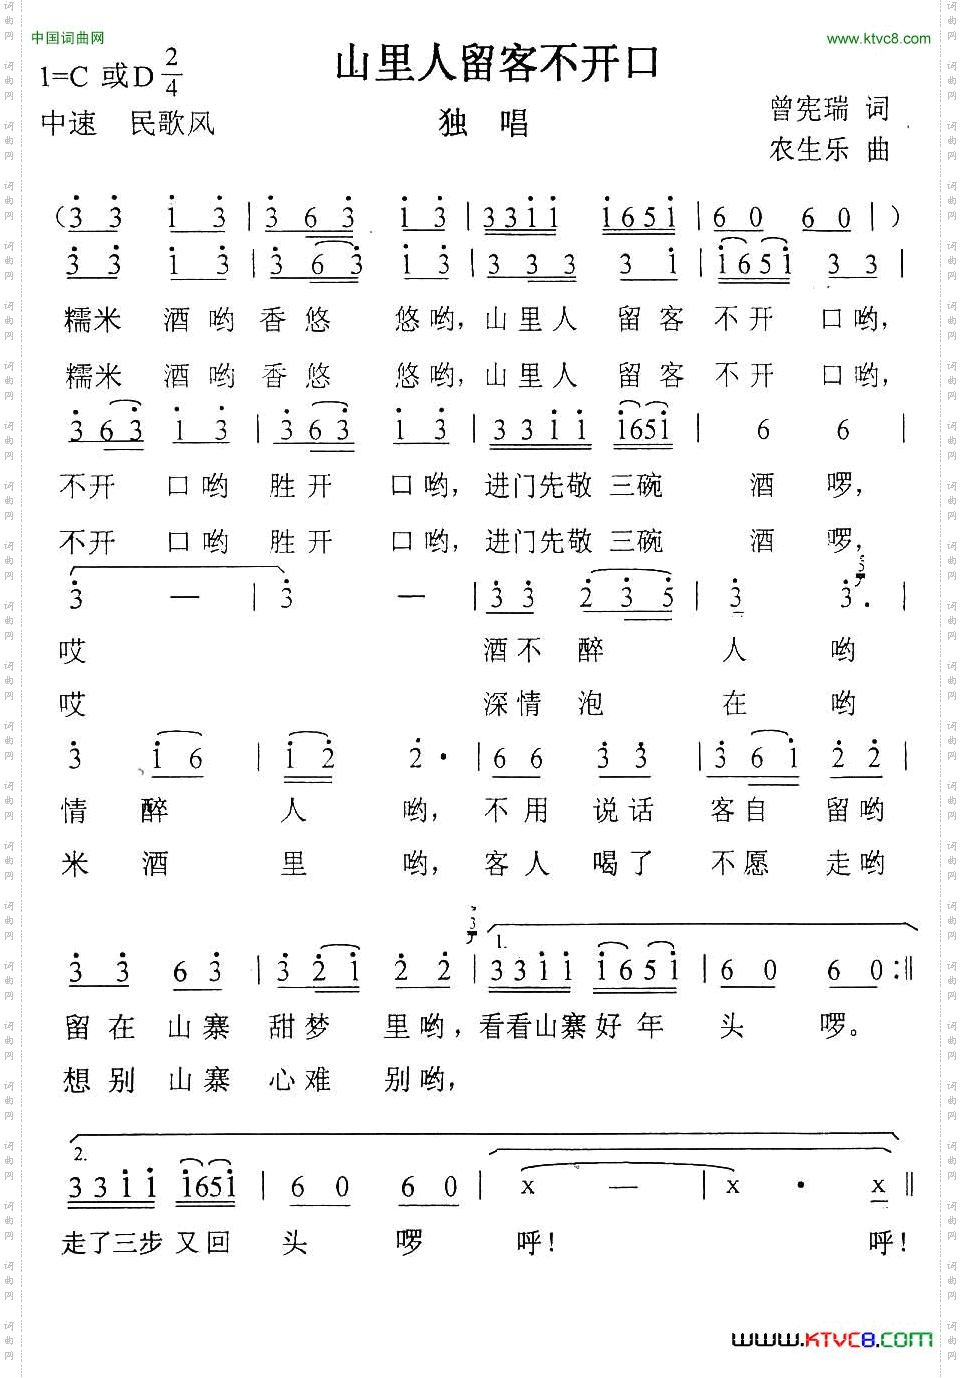 中国词曲网
www.ktvc8.com
山里人留客不开口
1=C 或D 2/4
中速 民歌风
独 唱
曾宪瑞 词
农生乐 曲
(3 3 1 3 | 3 6 3 1 3 | 3 3 1 1 1 6 5 1 | 6 0 6 0 | )
3 3 1 3 | 3 6 3 1 3 | 3 3 3 3 1 | 1 6 5 1 3 3 |
糯米 酒哟香悠 悠哟,山里人 留客 不开 口哟,
糯米 酒哟香悠 悠哟,山里人 留客 不开 口哟,
3 6 3 1 3 | 3 6 3 1 3 | 3 3 1 1 1 6 5 1 | 6 6 |
不开 口哟 胜开 口哟,进门先敬 三碗 酒 啰,
不开 口哟 胜开 口哟,进门先敬 三碗 酒 啰,
5
3 — | 3 — | 3 3 2 3 5 | 3 3. |
哎 酒不 醉 人 哟
哎 深情 泡 在 哟
3 1 6 | 1 2 2· | 6 6 3 3 | 3 6 1 2 2 |
情 醉 人 哟,不用 说话 客自 留哟
米 酒 里 哟,客人 喝了 不愿 走哟
3
1.
3 3 6 3 | 3 2 1 2 2 | 3 3 1 1 1 6 5 1 | 6 0 6 0 :||
留在 山寨 甜梦 里哟,看看山寨好年 头 啰。
想别 山寨 心难 别哟,
2.
3 3 1 1 1 6 5 1 | 6 0 6 0 | x — | x · x ||
走了三步又回 头 啰 呼! 呼!
www.KTVC8.com